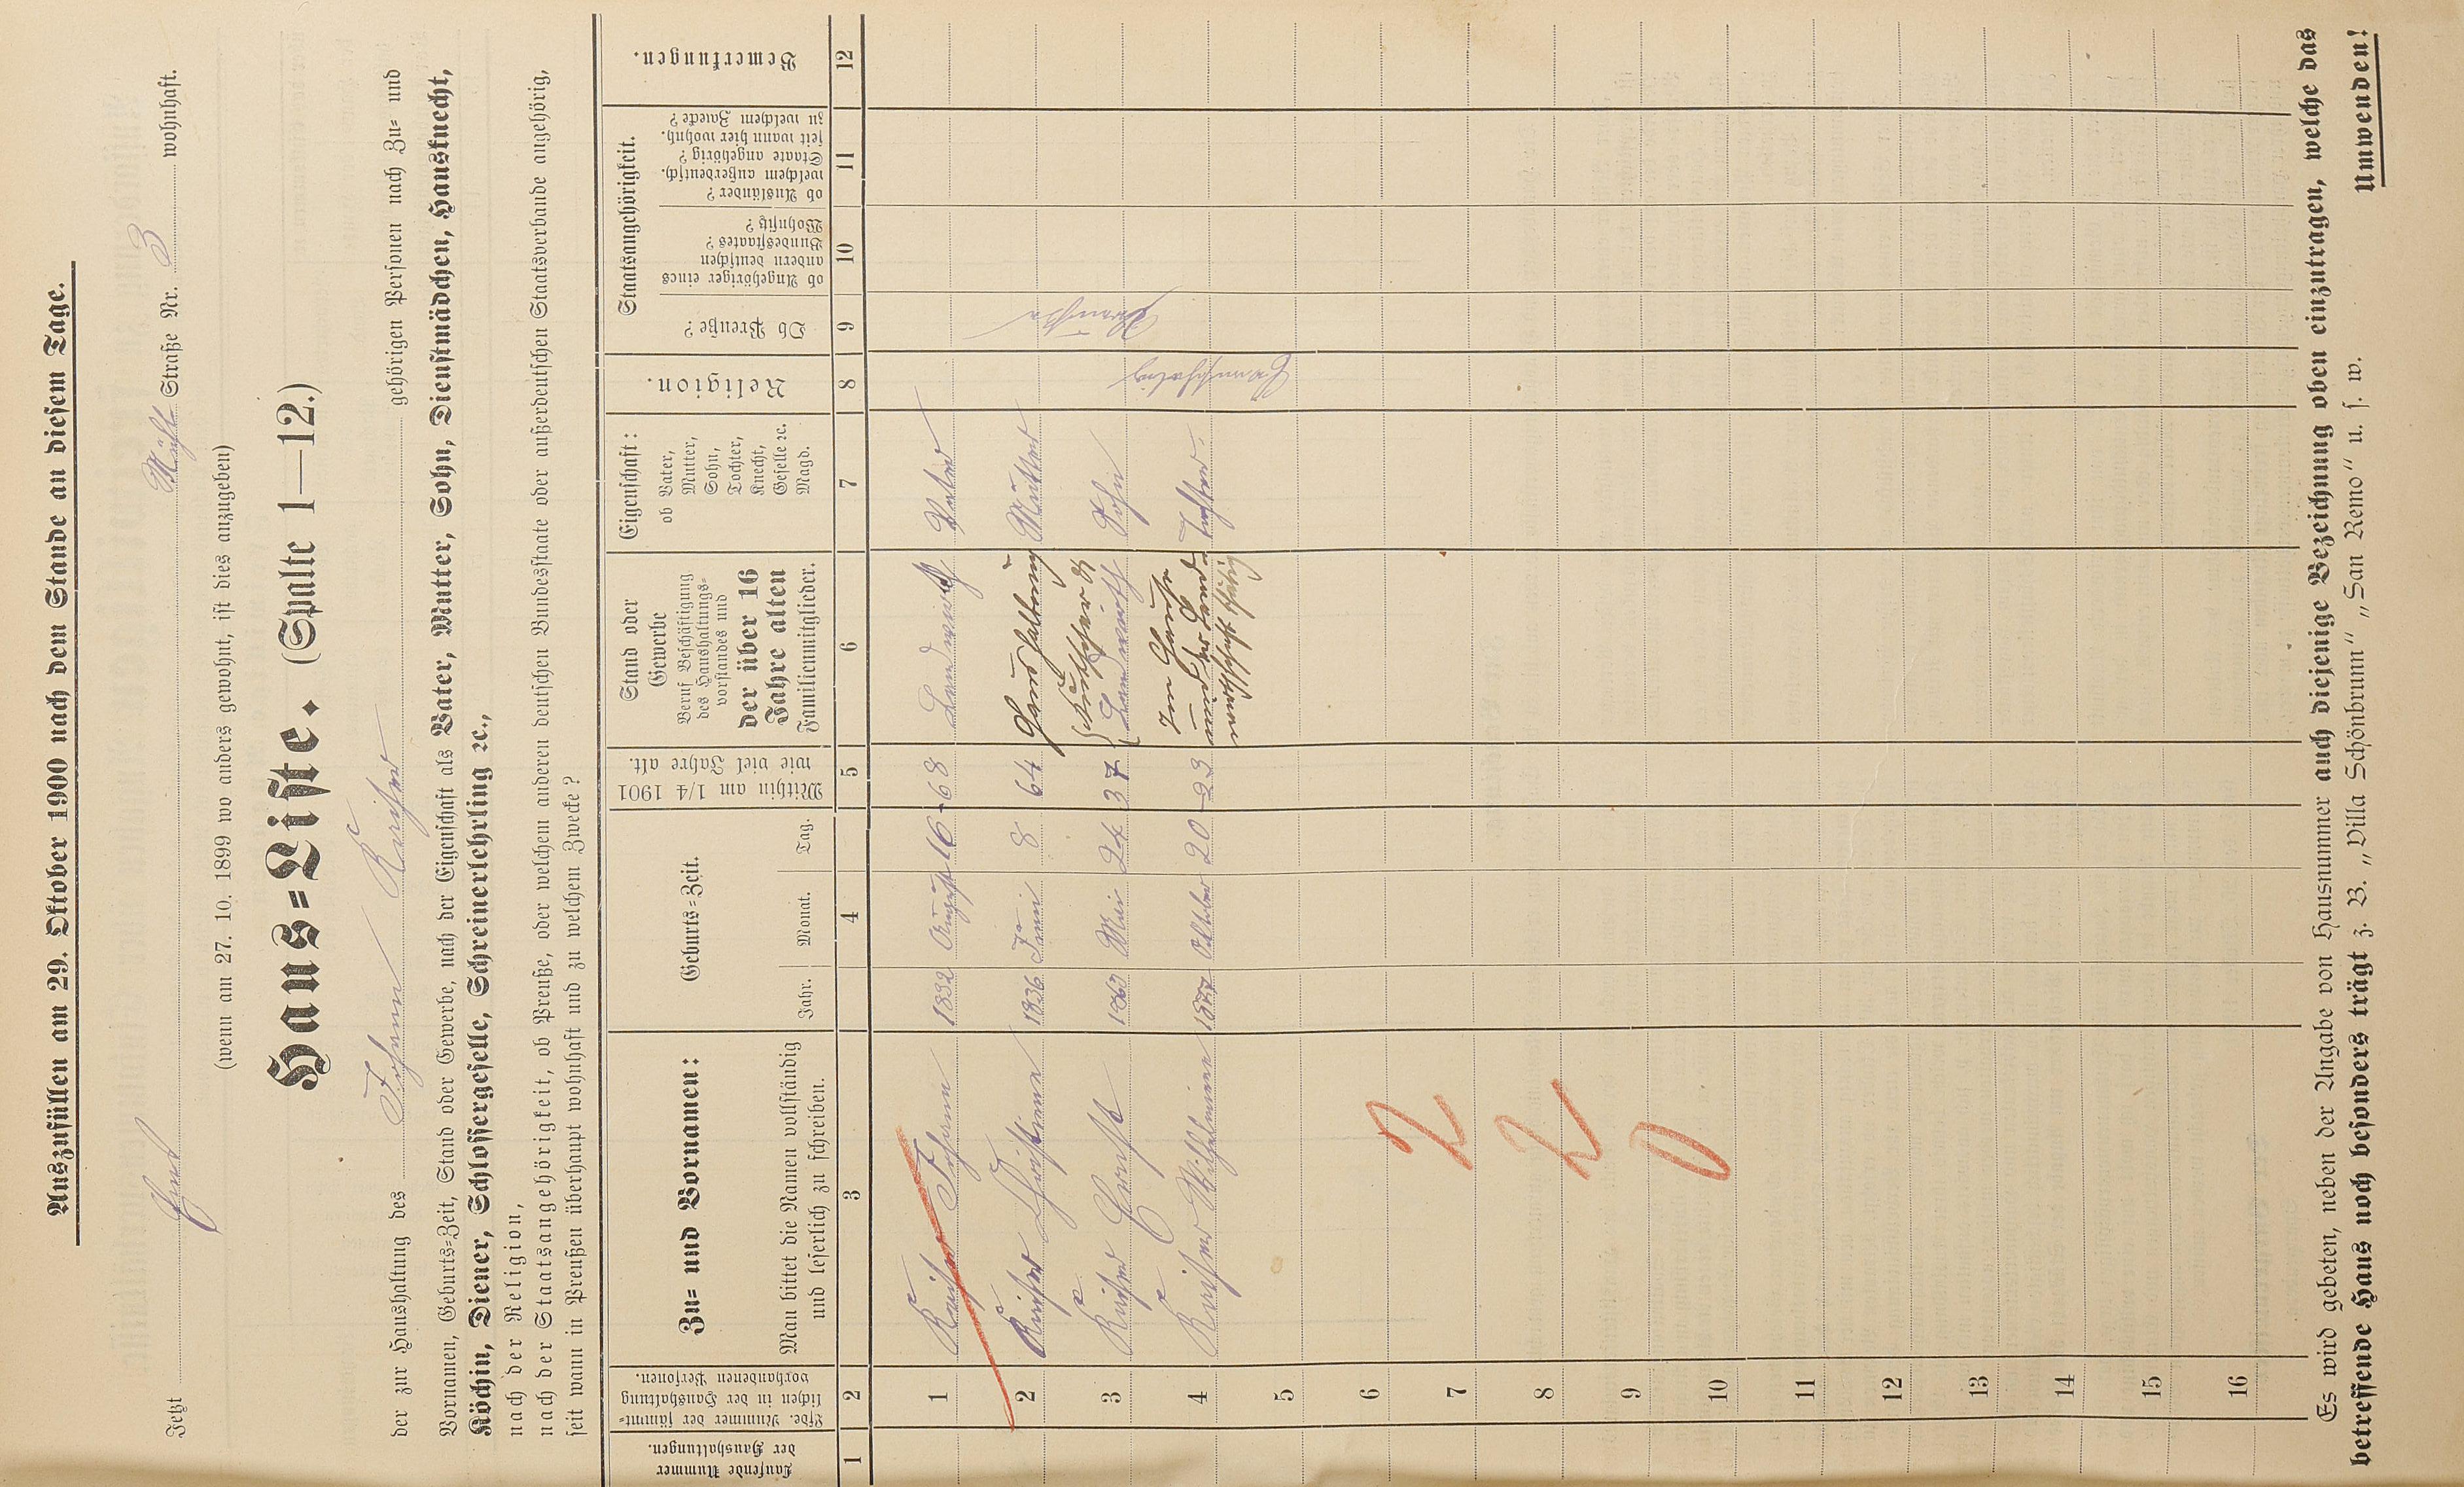 Auszufüllen am 29. Oktober 1900 nach dem Stande an diesem Tage.
Jetzt Straße Nr. 3 wohnhaft.
(wenn am 27. 10. 1899 wo anders gewohnt, ist dies anzugeben)
Haus=Liste. (Spalte 1—12.)
der zur Haushaltung des Johann gehörigen Personen nach Zu= und
Vornamen, Geburts=Zeit, Stand oder Gewerbe, nach der Eigenschaft als Vater, Mutter, Sohn, Dienstmädchen, Hausknecht,
Köchin, Diener, Schlossergeselle, Schreinerlehrling ꝛc.,
nach der Religion,
nach der Staatsangehörigkeit, ob Preuße, oder welchem anderen deutschen Bundesstaate oder außerdeutschen Staatsverbande angehörig,
seit wann in Preußen überhaupt wohnhaft und zu welchem Zwecke?
Laufende Nummer
der Haushaltungen.
Lfde. Nummer der sämmt=
lichen in der Haushaltung
vorhandenen Personen.
Zu= und Vornamen:
Man bittet die Namen vollständig
und leserlich zu schreiben.
Geburts=Zeit.
Jahr. Monat. Tag.
Mithin am 1/4 1901
wie viel Jahre alt.
Stand oder
Gewerbe
Beruf Beschäftigung
des Haushaltungs=
vorstandes und
der über 16
Jahre alten
Familienmitglieder.
Eigenschaft:
ob Vater,
Mutter,
Sohn,
Tochter,
Knecht,
Geselle ꝛc.
Magd.
Religion.
Staatsangehörigkeit.
Ob Preuße?
ob Angehöriger eines
andern deutschen
Bundesstaates?
Wohnsitz?
ob Ausländer?
welchem außerdeutsch.
Staate angehörig?
seit wann hier wohnh.
zu welchem Zwecke?
Bemerkungen.
1 2 3 4 5 6 7 8 9 10 11 12
1 Johann 1832 August 16 68 Landwirth Vater
2 Christiane 1836 Juni 8 64 Haushaltung Mutter
3 Ernst 1863 Mai 24 37 Landwirth Sohn
4 Wilhelmine 1877 Oktober 20 23 Im Hause und der Land- wirthschaft thätig Tochter
Preuße
5
6
7
8
9
10
11
12
13
14
15
16
2
2
0
Es wird gebeten, neben der Angabe von Hausnummer auch diejenige Bezeichnung oben einzutragen, welche das
betreffende Haus noch besonders trägt z. B. „Villa Schönbrunn“ „San Remo“ u. s. w.
Umwenden!